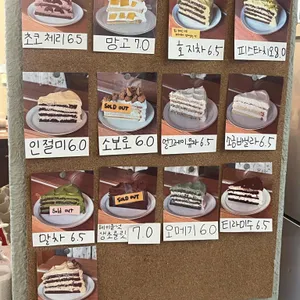 초코체리 6.5
망고 7.0
호지차 6.5
피스타치오 8.0
인절미 6.0
SOLD OUT
소보로 6.0
얼그레이 6.5
6.5
Sold out
말차 6.5
SOLD OUT
생초콜릿 7.0
오메기 6.0
티라미수 6.5